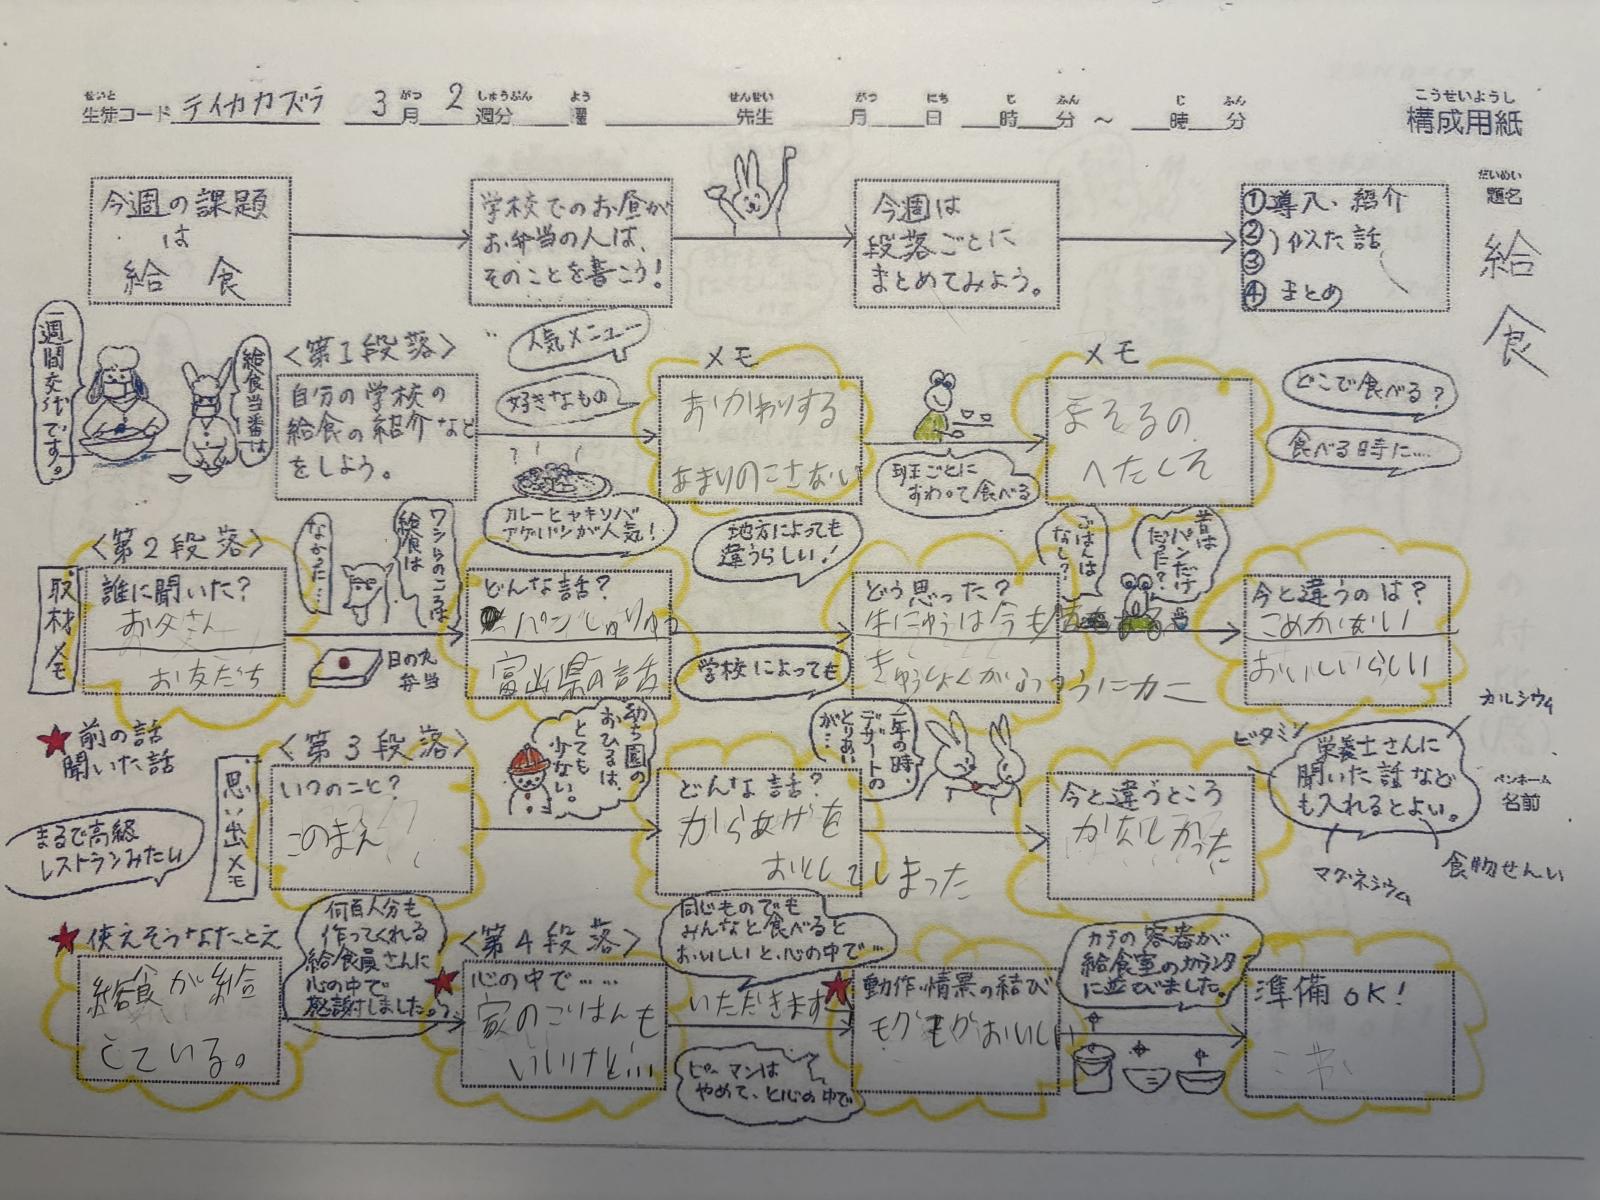 せいと がつ しゅうぶん よう せんせい がつ にち じ ふん じ ふん
生徒コード テイカカズラ 3月 2週分 曜 先生 月 日 時 分 ~ 時 分
こうせいようし
構成用紙
だいめい
題名
給食
今週の課題
は
給 食
学校でのお昼が
お弁当の人は、
そのことを書こう!
今週は
段落ごとに
まとめてみよう。
①導入、紹介
②
③ 似た話
④ まとめ
一週間交代です。
給食当番は
<第1段落>
自分の学校の
給食の紹介など
をしよう。
人気メニュー
好きなもの
カレーとヤキソバ
アゲパンが人気!
メモ
おかわりする
あまりのこさない
班ごとに
すわって食べる
メモ
よそるの
へたくそ
どこで食べる?
食べる時に…
<第2段落>
取材メモ
誰に聞いた?
お父さん
お友だち
なかった…
ワシらのころは
給食は
日の丸
弁当
どんな話?
パン
富山県の話
地方によっても
違うらしい!
学校によっても
どう思った?
牛にゅうは今も
きゅうしょくがふつうにカニ
ごはんは
なし?
昔は
パンだけ
だった?
今と違うのは?
こめがない
おいしいらしい
★前の話
聞いた話
まるで高級
レストランみたい
<第3段落>
思い出メモ
いつのこと?
このまえ
幼ち園の
おひるは、
とても
少ない。
どんな話?
からあげを
おとしてしまった
一年の時
デザートの
とりあい
が…
今と違うところ
かなしかった
カルシウム
ビタミン
栄養士さんに
聞いた話など
も入れるとよい。
マグネシウム
食物せんい
ペンネーム
名前
★使えそうなたとえ
給食が給
している。
何百人分も
作ってくれる
給食員さんに
心の中で
感謝しました。
<第4段落>
★心の中で……
家のごはんも
いいけど…
同じものでも
みんなと食べると
おいしいと、心の中で…
いただきます
ピーマンは
やめて、と心の中で
★動作・情景の結び
モグモグおいしい
カラの容器が
給食室のカウンタ
に並びました。
準備OK!